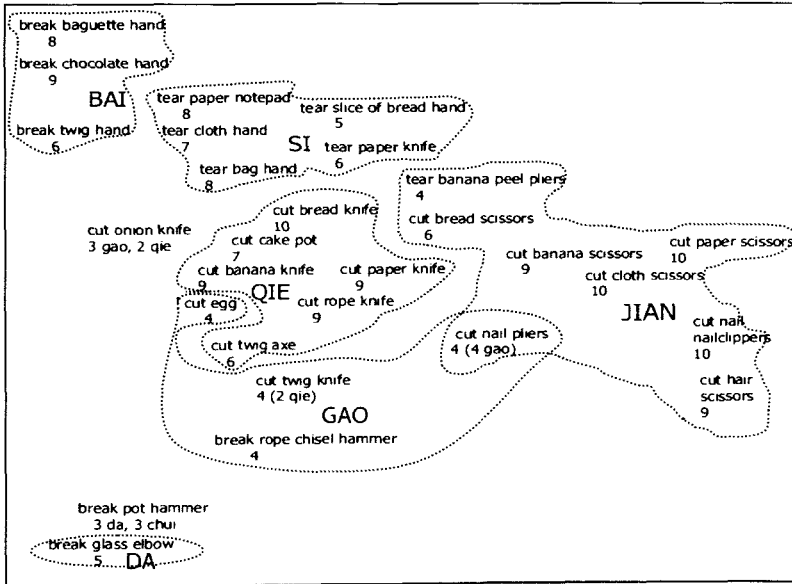 break baguette hand
8
break chocolate hand
9
BAI
break twig hand
6
tear paper notepad
8
tear slice of bread hand
5
tear cloth hand
7
SI
tear paper knife
6
tear bag hand
8
tear banana peel pliers
4
cut bread scissors
6
cut onion knife
3 gao, 2 qie
cut bread knife
10
cut cake pot
7
cut banana knife
9
cut paper knife
9
QIE
cut egg
4
cut rope knife
9
cut twig axe
6
cut banana scissors
9
cut paper scissors
10
cut cloth scissors
10
JIAN
cut nail
nailclippers
10
cut hair
scissors
9
cut nail pliers
4 (4 gao)
cut twig knife
4 (2 qie)
GAO
break rope chisel hammer
4
break pot hammer
3 da, 3 chui
break glass elbow
5
DA